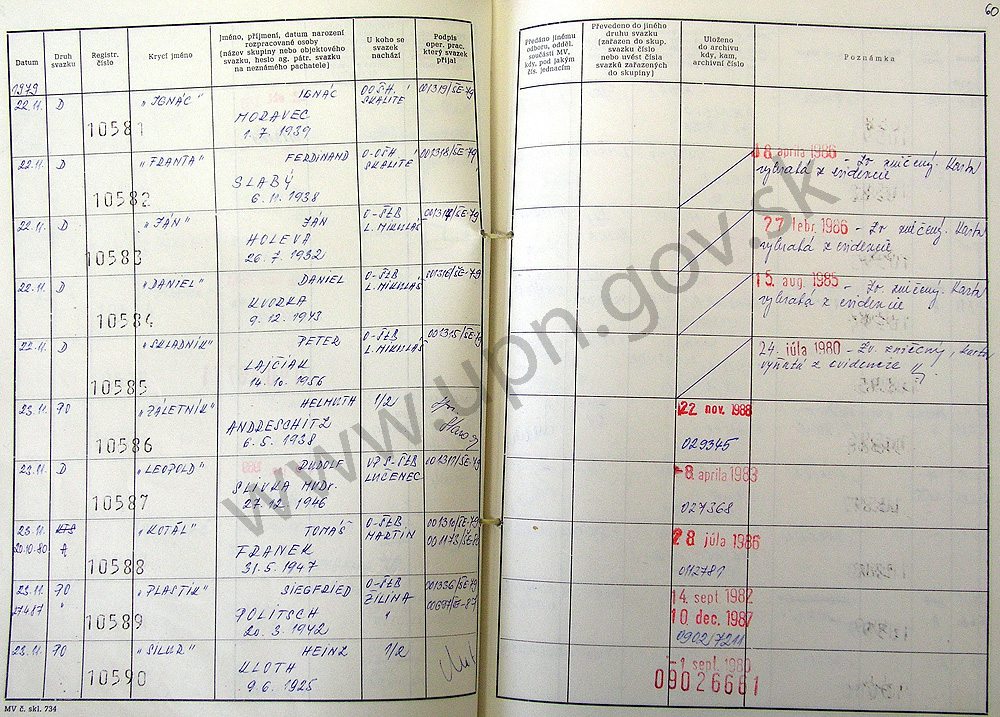 60
Datum
Druh svazku
Registr. číslo
Krycí jméno
Jméno, příjmení, datum narození
rozpracované osoby
(název skupiny nebo objektového
svazku, heslo ag. pátr. svazku
na neznámého pachatele)
U koho se
svazek
nachází
Podpis
oper. prac.
který svazek
přijal
Předáno jinému
odboru, odděl.
součásti MV,
kdy, pod jakým
čís. jednacím
Převedeno do jiného
druhu svazku
(zařazen do skup.
svazku číslo
nebo uvést čísla
svazků zařazených
do skupiny)
Uloženo
do archivu
kdy, kam,
archivní číslo
Poznámka
1979
22.11. D 10581 „IGNÁC" IGNÁC
MORAVEC
1. 7. 1939
OOŠH.
SKALITÉ
001319/ŠE-79
22.11. D 10582 „FRANTA" FERDINAND
SLABÝ
6. 11. 1938
O-OŠH
SKALITÉ
001318/ŠE-79
18. apríla 1986 - Zv. zničený. Karta
vybratá z evidencie
22.11. D 10583 „JÁN" JÁN
HOLEVA
26. 7. 1932
O-ŠtB
L. MIKULÁŠ
27. febr. 1986 - Zv. zničený. Karta
vybratá z evidencie
22.11. D 10584 „DANIEL" DANIEL
9. 12. 1943
O-ŠtB
L. MIKULÁŠ
001316/ŠE-79
15. aug. 1985 - Zv. zničený. Karta
vybratá z evidencie
22.11. D 10585 „SKLADNÍK" PETER
LAJČIAK
14. 10. 1956
O-ŠtB
L. MIKULÁŠ
001315/ŠE-79
24. júla 1980 - Zv. zničený, karta
vyňatá z evidencie
23.11. 70 10586 „ZÁLETNÍK" HELMUTH
ANDRESCHITZ
6. 5. 1938
1/2
22 nov. 1988
029345
23.11. D 10587 „LEOPOLD" RUDOLF
SLIVKA MUDr.
27. 12. 1946
LUČENEC
-8. apríla 1983
027368
23.11. KTS 10588 „KOTÁL" TOMÁŠ
20.10.80 A
FRANEK
31. 5. 1947
O-ŠtB
MARTIN
28 júla 1986
23.11. 70 10589 „PLASTIK" SIEGFRIED
POLITSCH
20. 3. 1942
O-ŠtB
ŽILINA
001336/ŠE-79
14. sept. 1982
10 dec. 1987
0902/7211
23.11. 70 10590 „SILUR" HEINZ
KLOTH
9. 6. 1925
1/2
-1. sept. 1980
09026661
MV č. skl. 734
www.upn.gov.sk